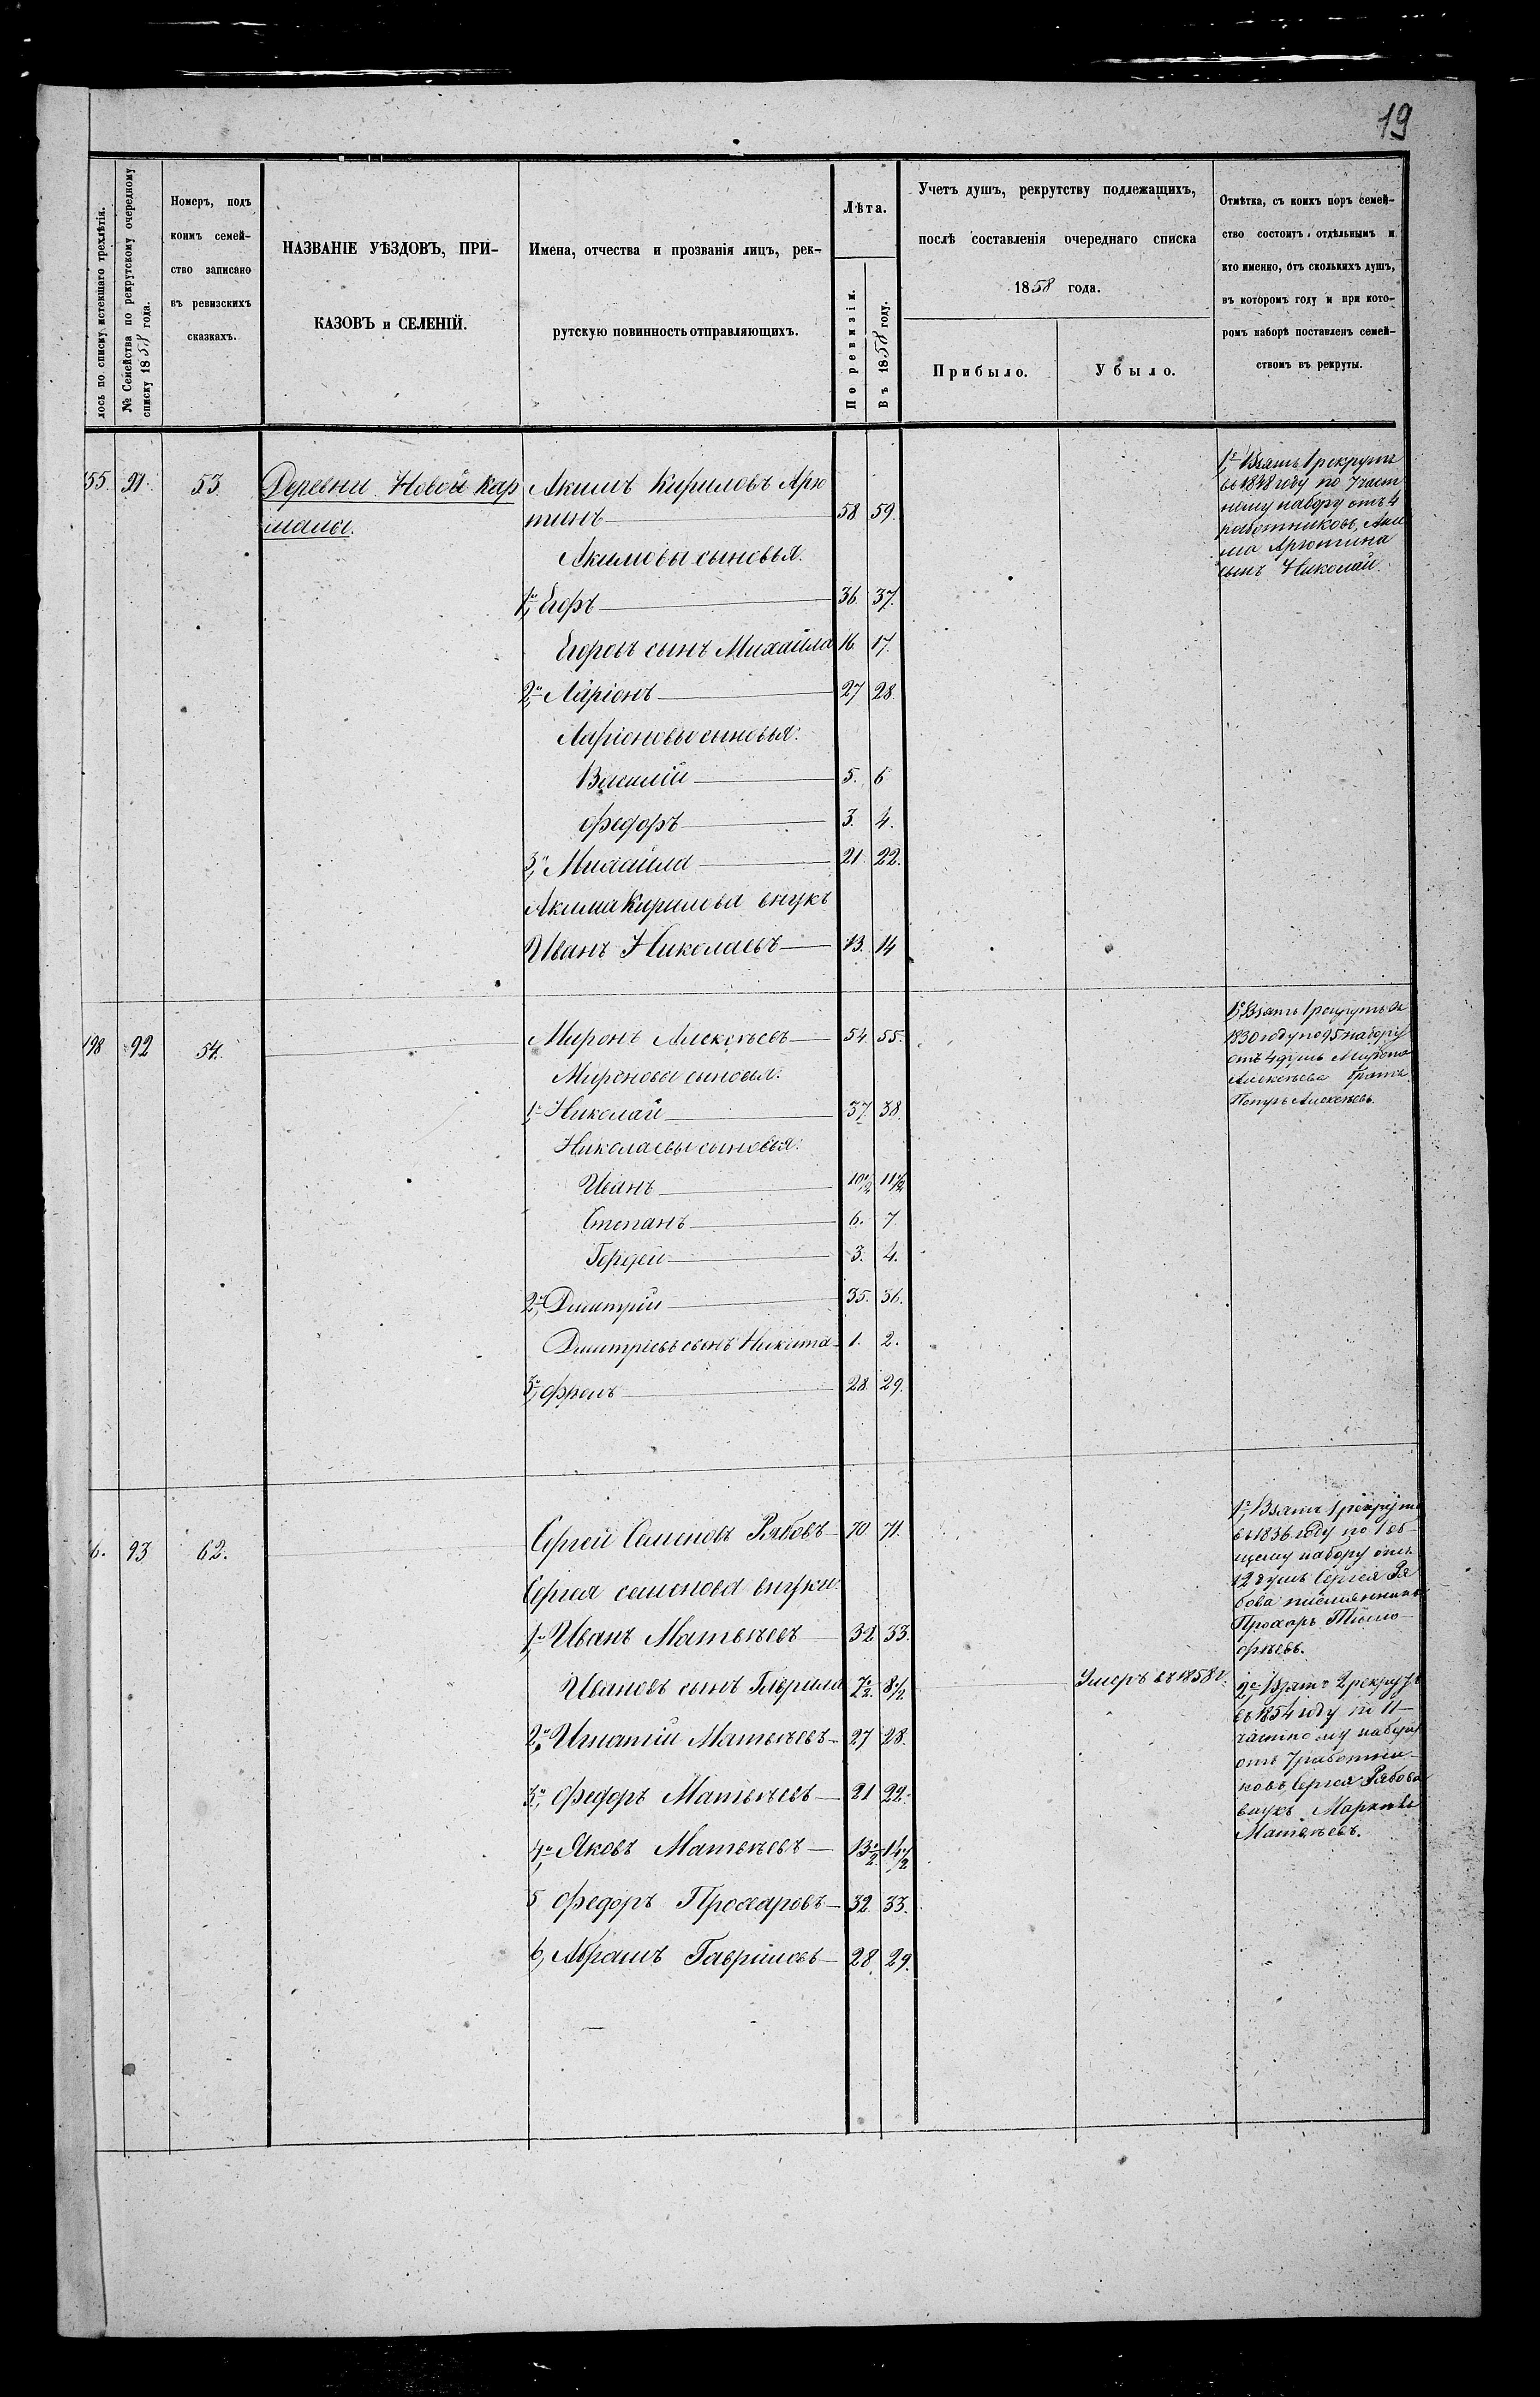 19
лось по списку истекшаго трехлѣтія.
№ Семейства по рекрутскому очередному
списку 1858 года.
Номеръ, подъ
коимъ семей-
ство записано
въ ревизскихъ
сказкахъ.
НАЗВАНІЕ УѢЗДОВЪ, ПРИ-
КАЗОВЪ и СЕЛЕНІЙ.
Имена, отчества и прозванія лицъ, рек-
рутскую повинность отправляющихъ.
Лѣта.
По ревизіи.
Въ 1858 году.
Учетъ душъ, рекрутству подлежащихъ,
послѣ составленія очереднаго списка
1858 года.
Прибыло.
Убыло.
Отмѣтка, съ коихъ поръ семей-
ство состоитъ отдѣльнымъ и
кто именно, отъ сколькихъ душъ,
въ которомъ году и при кото-
ромъ наборѣ поставленъ семей-
ствомъ въ рекруты.
155. 91. 53 Деревни Новой Кар
малы.
Акимъ Кириловъ Арю
тинъ 58. 59.
Акимовы сыновья.
1й, Егоръ 36. 37.
Егоровъ сынъ Михайла 16. 17.
2й, Ларіонъ 27 28.
Ларіоновы сыновья:
Василій 5. 6
Федоръ 3. 4.
3й, Михайла 21. 22.
Акима Кирилова внукъ
Иванъ Николаевъ 13. 14
1й Взятъ 1 рекрутъ
въ 1848 году по 7 част
ному набору отъ 4
работниковъ, Аки
ма Арютина
сынъ Николай.
198 92 54.
Миронъ Алексѣевъ 54. 55.
Мироновы сыновья:
1й Николай 37. 38.
Николаевы сыновья:
Иванъ 10 1/2 11 1/2
Степанъ 6. 7.
Гордей 3. 4.
2й, Дмитрій 35. 36.
Дмитріевъ сынъ Никита 1. 2.
3й, Фролъ 28. 29.
1й, Взятъ 1 рекрутъ въ
1830 году по 95 набору
отъ 4 душъ Мирона
Алексѣева братъ
Петръ Алексѣевъ.
6. 93 62.
Сергей Семеновъ Рябовъ 70 71.
Сергея Семенова внуки:
1й Иванъ Матвѣевъ 32 33.
Ивановъ сынъ Гаврила 7 1/2 8 1/2 Умеръ въ 1858 г.
2й, Игнатій Матвѣевъ 27 28.
3й, Федоръ Матвѣевъ 21 22.
4й, Яковъ Матвѣевъ 13 1/2 14 1/2
5 Федоръ Прохаровъ 32. 33.
6, Абрамъ Гавриловъ 28. 29.
1й, Взятъ 1 рекрутъ
въ 1836 году по 1 об-
щему набору отъ
12 душъ Сергея Ря
бова племянникъ
Прохаръ Тимо-
фѣевъ.
2й, Взятъ 2 рекрутъ
въ 1854 году по 11
частному набору
отъ 7 работни-
ковъ, Сергея Рябова
внукъ
Матвѣевъ.